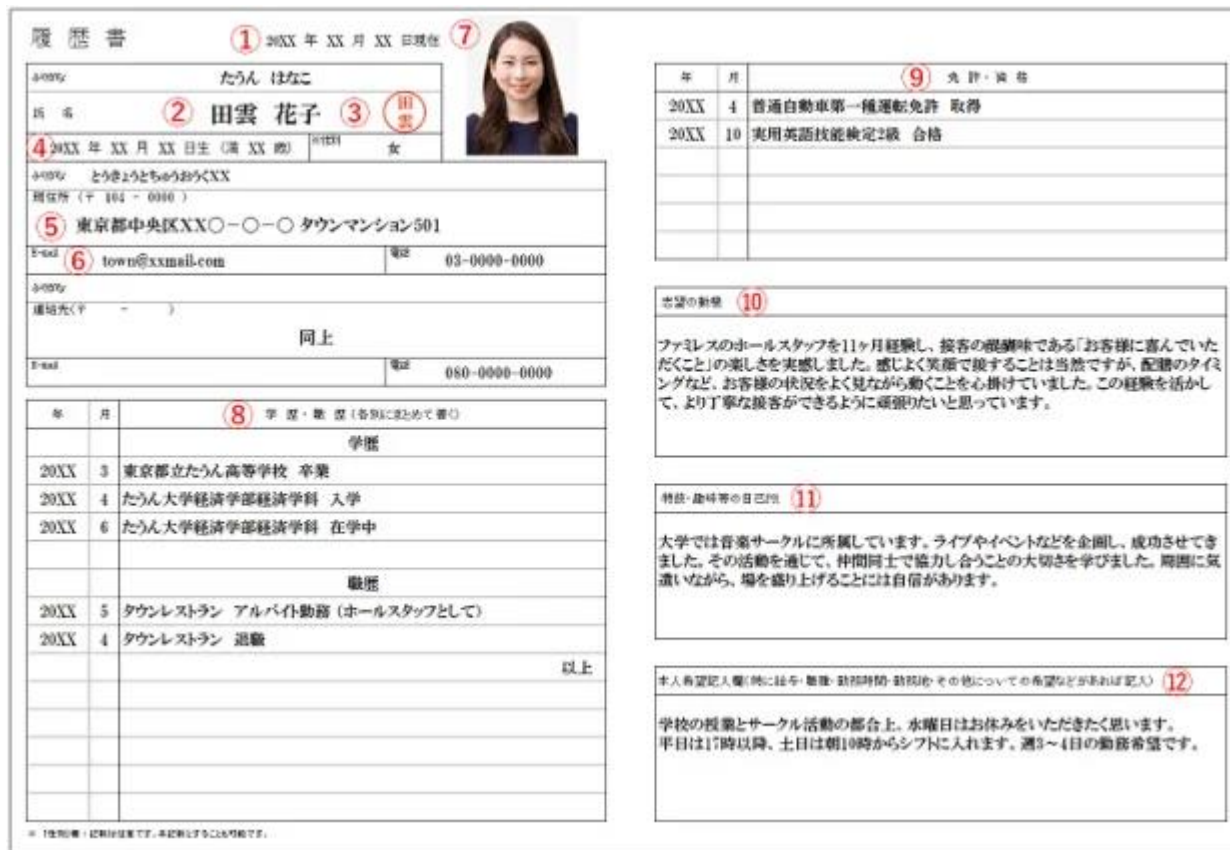 履歴書
① 20XX 年 XX 月 XX 日現在 ⑦
ふりがな たうん はなこ
氏 名 ② 田雲 花子 ③ 田雲
④ 20XX 年 XX 月 XX 日生 (満 XX 歳) ※性別 女
ふりがな とうきょうとちゅうおうくXX
現住所 (〒 104 - 0000 )
⑤ 東京都中央区XX○-○-○ タウンマンション501
E-mail ⑥ town@xxmail.com 電話 03-0000-0000
ふりがな
連絡先(〒 - )
同上
E-mail 電話 080-0000-0000
年 月 ⑧ 学 歴・職 歴 (各別にまとめて書く)
学歴
20XX 3 東京都立たうん高等学校 卒業
20XX 4 たうん大学経済学部経済学科 入学
20XX 6 たうん大学経済学部経済学科 在学中
職歴
20XX 5 タウンレストラン アルバイト勤務 (ホールスタッフとして)
20XX 4 タウンレストラン 退職
以上
※「性別」欄:記載は任意です。未記載とすることも可能です。
年 月 ⑨ 免 許・資 格
20XX 4 普通自動車第一種運転免許 取得
20XX 10 実用英語技能検定2級 合格
志望の動機 ⑩
ファミレスのホールスタッフを11ヶ月経験し、接客の醍醐味である「お客様に喜んでいた
だくこと」の楽しさを実感しました。感じよく笑顔で接することは当然ですが、配膳のタイミ
ングなど、お客様の状況をよく見ながら動くことを心掛けていました。この経験を活かし
て、より丁寧な接客ができるように頑張りたいと思っています。
特技・趣味等の自己PR ⑪
大学では音楽サークルに所属しています。ライブやイベントなどを企画し、成功させてき
ました。その活動を通じて、仲間同士で協力し合うことの大切さを学びました。周囲に気
遣いながら、場を盛り上げることには自信があります。
本人希望記入欄(特に給与・職種・勤務時間・勤務地・その他についての希望などがあれば記入) ⑫
学校の授業とサークル活動の都合上、水曜日はお休みをいただきたく思います。
平日は17時以降、土日は朝10時からシフトに入れます。週3~4日の勤務希望です。